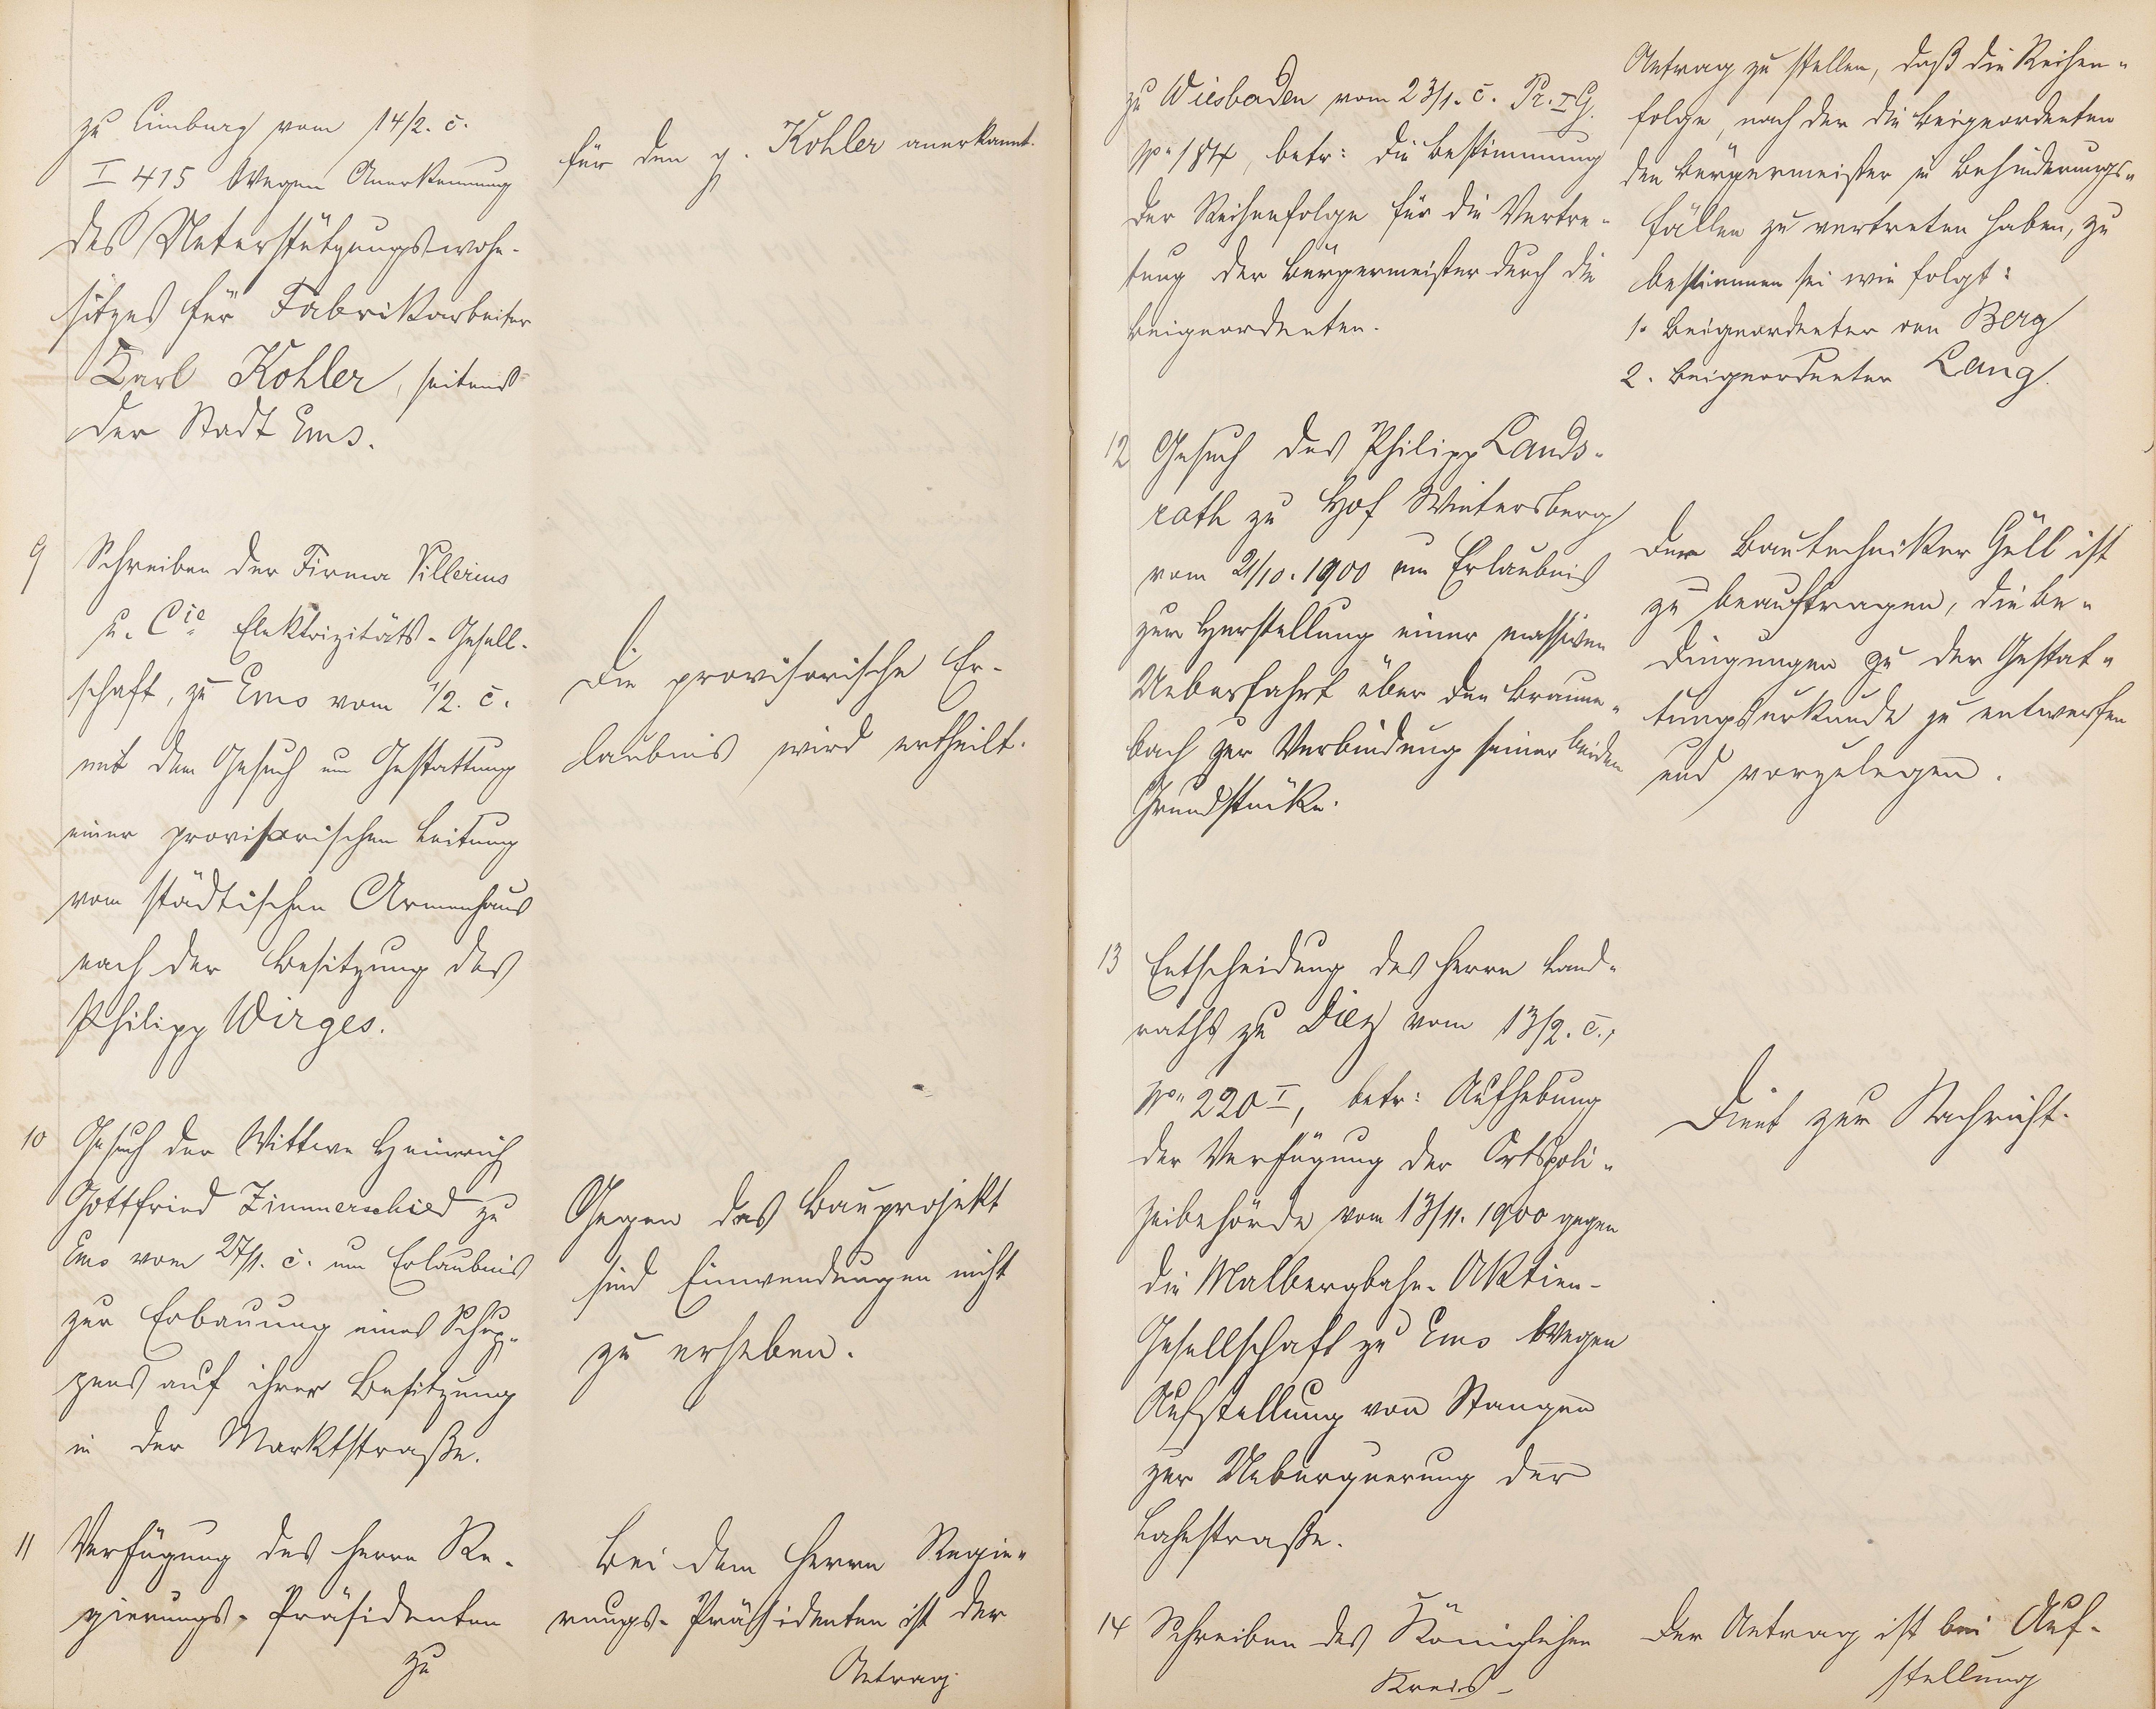 zu Limburg vom 14/2. c.
I 415 wegen Anerkennung
des Unterstützungswohn-
sitzes für Fabrikarbeiter
Karl Kohler, seitens
der Stadt Ems.
für den p. Kohler anerkannt.
9 Schreiben der Firma Villerius
u. Cie Elektrizitäts-Gesell-
schaft, zu Ems vom 1/2. c.
mit dem Gesuch um Gestattung
einer provisorischen Leitung
vom städtischen Armenhaus
nach der Besitzung des
Philipp Wirges.
Die provisorische Er-
laubnis wird ertheilt.
10 Gesuch der Wittwe Heinrich
Gottfried Zimmerschied zu
Ems vom 27/1. c. um Erlaubnis
zur Erbauung eines Schup-
pens auf ihrer Besitzung
in der Marktstraße.
Gegen das Bauprojekt
sind Einwendungen nicht
zu erheben.
11 Verfügung des Herrn Re-
gierungs-Präsidenten
zu
Bei dem Herrn Regie-
rungs-Präsidenten ist der
Antrag
zu Wiesbaden vom 23/1. c. Pr. I G.
No 184, betr: die Bestimmung
der Reihenfolge für die Vertre-
tung der Bürgermeister durch die
Beigeordneten.
Antrag zu stellen, daß die Reihen-
folge, nach der die Beigeordneten
den Bürgermeister in Behinderungs-
fällen zu vertreten haben, zu
bestimmen sei wie folgt:
1. Beigeordneter von Berg
2. Beigeordneter Lang.
12 Gesuch des Philipp Lands-
rath zu Hof Wintersberg
vom 2/10. 1900 um Erlaubnis
zur Herstellung einer massiven
Ueberfahrt über den Braune-
bach zur Verbindung seiner beiden
Grundstücke.
Der Bautechniker Güll ist
zu beauftragen, die Be-
dingungen zu der Gestat-
tungsurkunde zu entwerfen
und vorzulegen.
13 Entscheidung des Herrn Land-
raths zu Diez vom 13/2. c.,
No 220 I, betr: Aufhebung
der Verfügung der Ortspoli-
zeibehörde vom 13/11. 1900 gegen
die Malbergbahn-Aktien-
Gesellschaft zu Ems wegen
Aufstellung von Stangen
zur Ueberquerung der
Lahnstraße.
Dient zur Nachricht.
14 Schreiben des Königlichen
Kreis-
Der Antrag ist bei Auf-
stellung